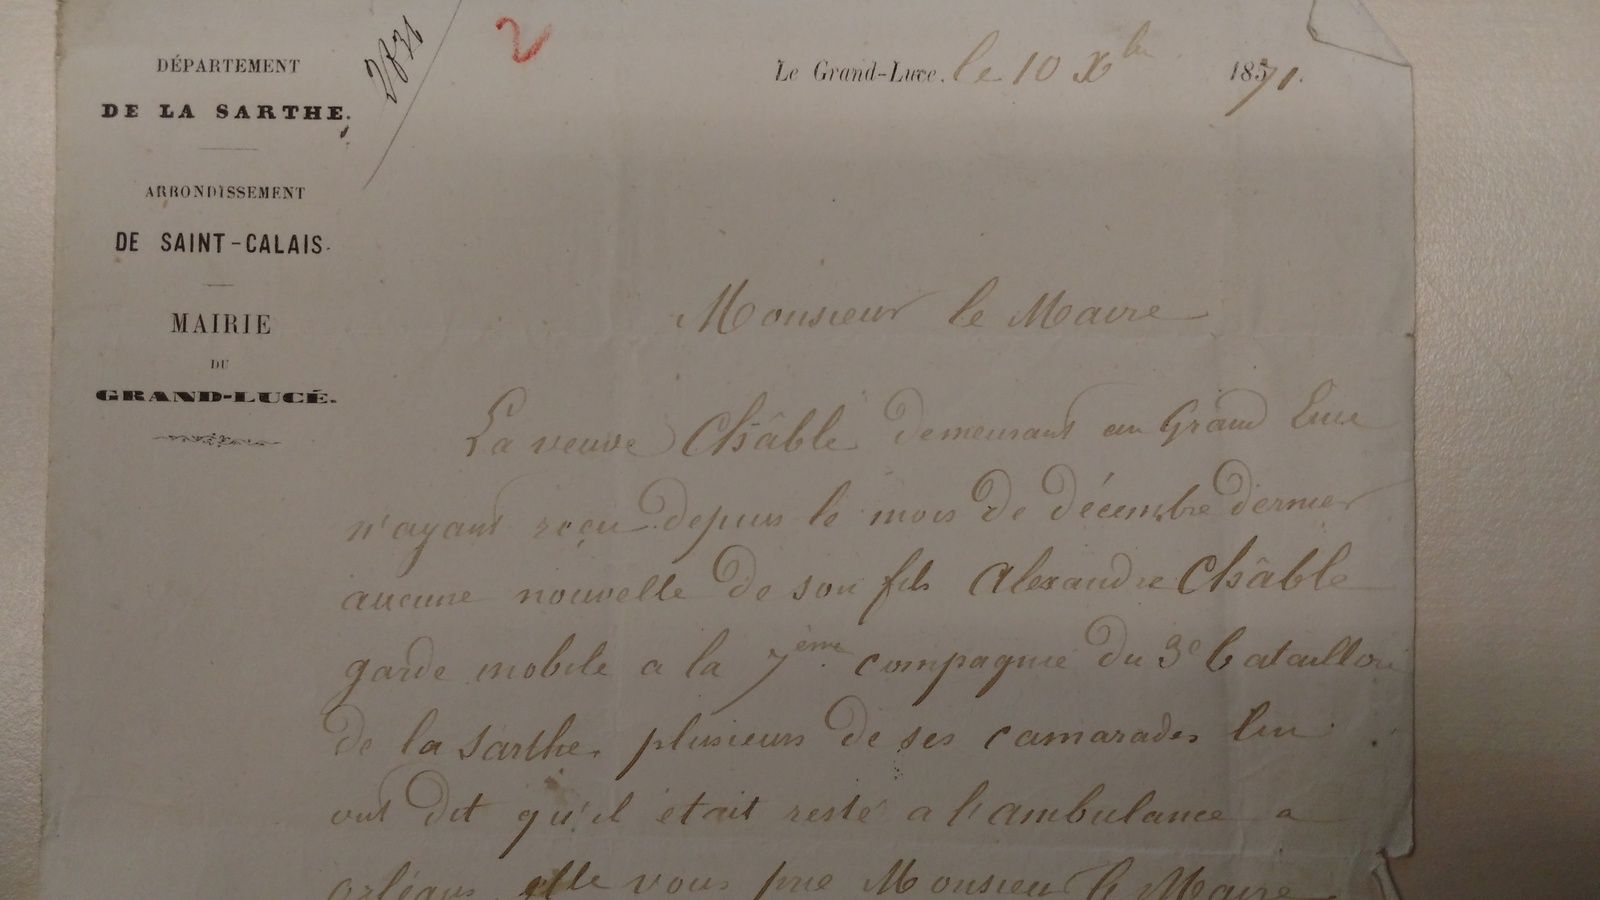 DÉPARTEMENT
DE LA SARTHE.
ARRONDISSEMENT
DE SAINT-CALAIS.
MAIRIE
DU
GRAND-LUCÉ.
2831
2
Le Grand-Luce, le 10 Xbre 1871.
Monsieur le Maire
La veuve Châble demeurant au Grand Luce
n'ayant reçu depuis le mois de décembre dernier
aucune nouvelle de son fils Alexandre Châble
garde mobile a la 7ème compagnie du 3e bataillon
de la Sarthe, plusieurs de ses camarades lui
ont dit qu'il était resté a l'ambulance a
Orléans elle vous prie Monsieur le Maire